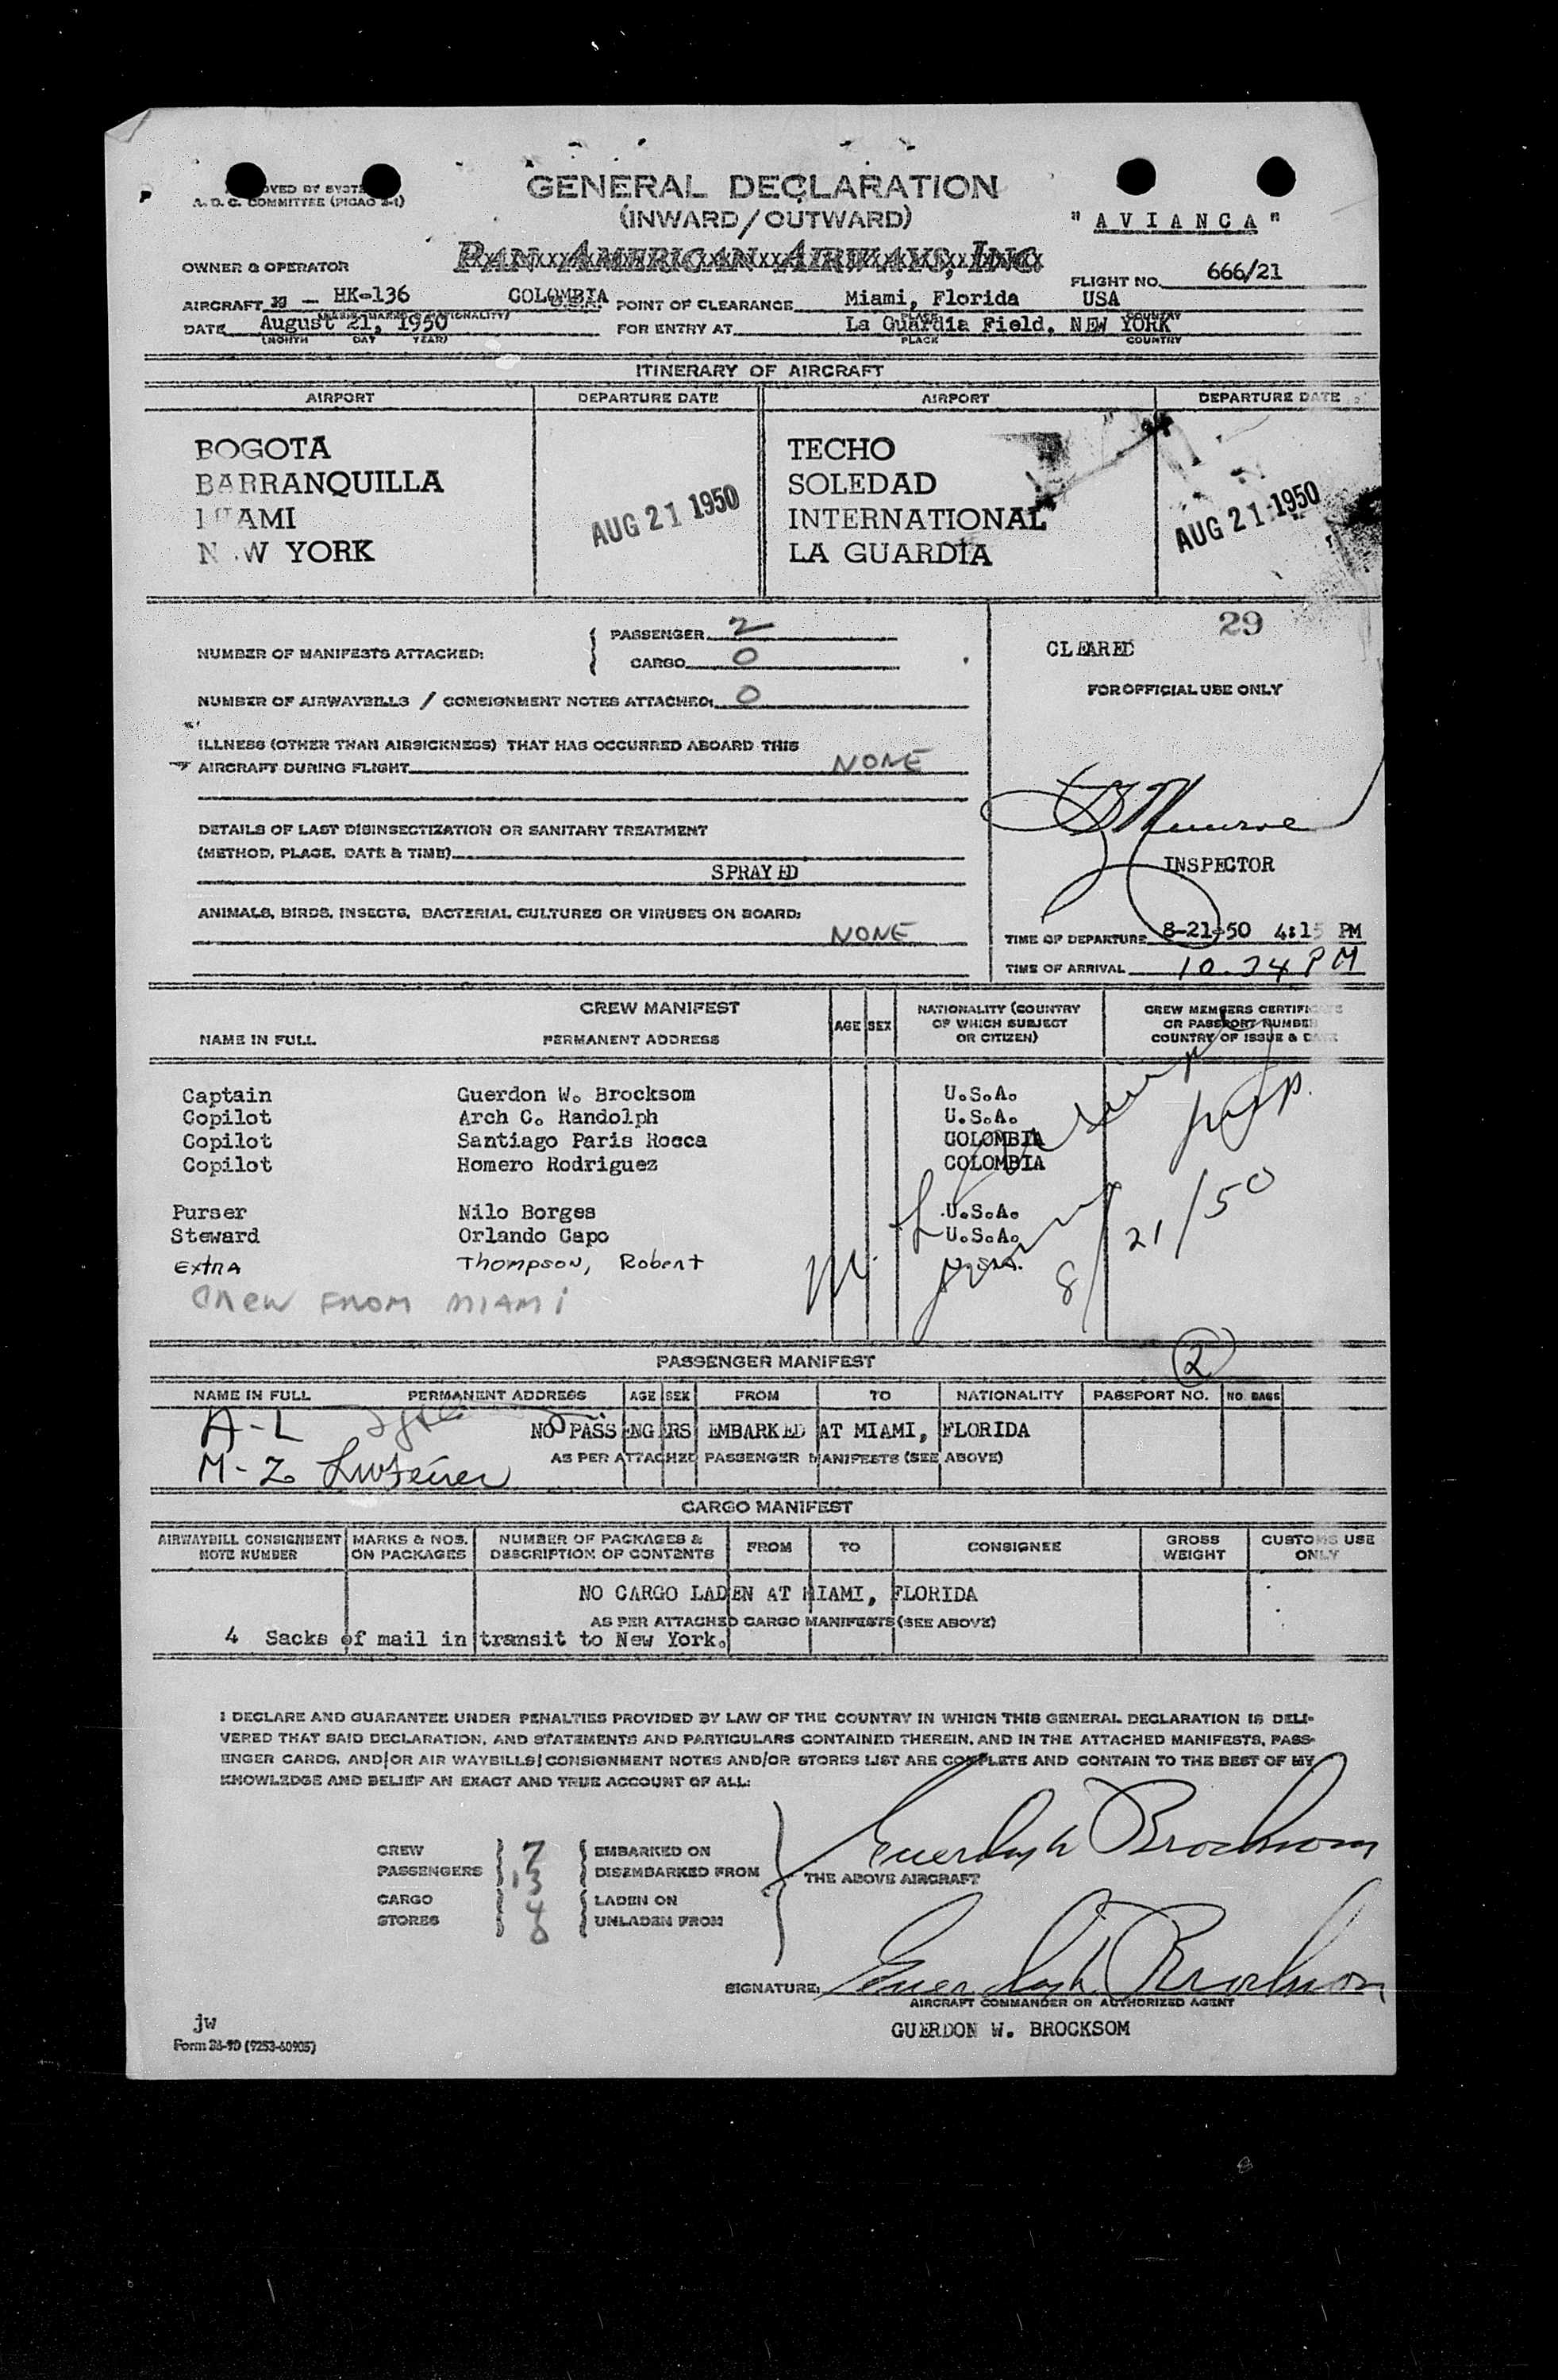 GENERAL DECLARATION
(INWARD/OUTWARD)
A. D. C. COMMITTEE (PICAO 2-1)
"AVIANCA"
PAN AMERICAN AIRWAYS, INC.
OWNER & OPERATOR
FLIGHT NO. 666/21
AIRCRAFT — HK-136 COLOMBIA POINT OF CLEARANCE Miami, Florida USA
DATE August 21, 1950 FOR ENTRY AT La Guardia Field, NEW YORK
(MONTH DAY YEAR) PLACE COUNTRY
ITINERARY OF AIRCRAFT
AIRPORT DEPARTURE DATE AIRPORT DEPARTURE DATE
BOGOTA TECHO
BARRANQUILLA SOLEDAD
MIAMI AUG 21 1950 INTERNATIONAL AUG 21 1950
NEW YORK LA GUARDIA
29
NUMBER OF MANIFESTS ATTACHED: { PASSENGER 2
CARGO 0
CLEARED
FOR OFFICIAL USE ONLY
NUMBER OF AIRWAYBILLS / CONSIGNMENT NOTES ATTACHED: 0
ILLNESS (OTHER THAN AIRSICKNESS) THAT HAS OCCURRED ABOARD THIS
AIRCRAFT DURING FLIGHT NONE
DETAILS OF LAST DISINSECTIZATION OR SANITARY TREATMENT
(METHOD, PLACE, DATE & TIME)
SPRAYED
INSPECTOR
ANIMALS, BIRDS, INSECTS, BACTERIAL CULTURES OR VIRUSES ON BOARD:
NONE
TIME OF DEPARTURE 8-21-50 4:15 PM
TIME OF ARRIVAL 10.34 PM
CREW MANIFEST
NAME IN FULL PERMANENT ADDRESS AGE SEX NATIONALITY (COUNTRY OF WHICH SUBJECT OR CITIZEN) CREW MEMBERS CERTIFICATE OR PASSPORT NUMBER COUNTRY OF ISSUE & DATE
Captain Guerdon W. Brocksom U.S.A.
Copilot Arch C. Randolph U.S.A.
Copilot Santiago Paris Rocca COLOMBIA
Copilot Homero Rodriguez COLOMBIA
Purser Nilo Borges U.S.A.
Steward Orlando Capo U.S.A.
Extra Thompson, Robert
8/21/50
Crew FROM MIAMI
PASSENGER MANIFEST
2
NAME IN FULL PERMANENT ADDRESS AGE SEX FROM TO NATIONALITY PASSPORT NO. NO. BAGS
A-L
NO PASSENGERS EMBARKED AT MIAMI, FLORIDA
AS PER ATTACHED PASSENGER MANIFESTS (SEE ABOVE)
M-Z
CARGO MANIFEST
AIRWAYBILL CONSIGNMENT NOTE NUMBER MARKS & NOS. ON PACKAGES NUMBER OF PACKAGES & DESCRIPTION OF CONTENTS FROM TO CONSIGNEE GROSS WEIGHT CUSTOMS USE ONLY
NO CARGO LADEN AT MIAMI, FLORIDA
AS PER ATTACHED CARGO MANIFESTS (SEE ABOVE)
4 Sacks of mail in transit to New York.
I DECLARE AND GUARANTEE UNDER PENALTIES PROVIDED BY LAW OF THE COUNTRY IN WHICH THIS GENERAL DECLARATION IS DELI-
VERED THAT SAID DECLARATION, AND STATEMENTS AND PARTICULARS CONTAINED THEREIN, AND IN THE ATTACHED MANIFESTS, PASS-
ENGER CARDS, AND/OR AIR WAYBILLS/CONSIGNMENT NOTES AND/OR STORES LIST ARE COMPLETE AND CONTAIN TO THE BEST OF MY
KNOWLEDGE AND BELIEF AN EXACT AND TRUE ACCOUNT OF ALL:
CREW 7 EMBARKED ON
PASSENGERS 13 DISEMBARKED FROM
THE ABOVE AIRCRAFT
CARGO 4 LADEN ON
STORES 0 UNLADEN FROM
SIGNATURE: Guerdon W Brocksom
AIRCRAFT COMMANDER OR AUTHORIZED AGENT
GUERDON W. BROCKSOM
jw
Form 36-9D (9253-60905)